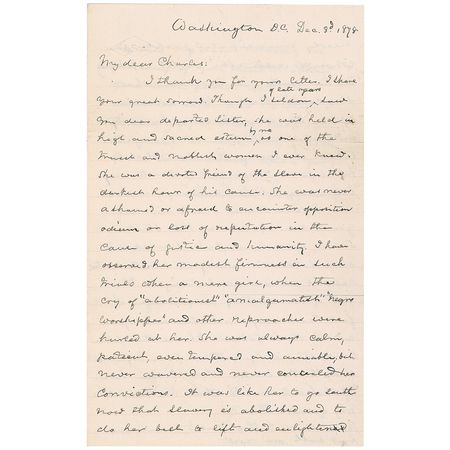 Washington D.C. Dec. 3d 1878
My dear Charles:
I thank you for your letter. I share
of late years
your great sorrow. Though I seldom saw
your dear departed sister, she was held in
by me
high and sacred esteem, as one of the
truest and noblest women I ever knew.
She was a devoted friend of the slave in the
darkest hour of his cause. She was never
ashamed or afraid to encounter opposition
odium or loss of reputation in the
cause of justice and humanity. I have
observed her modest firmness in such
trials when a mere girl, when the
cry of "abolitionist" "amalgamatist" "Negro
worshipper" and other reproaches were
hurled at her. She was always calm,
patient, even tempered and amiable, but
never wavered and never concealed her
convictions. It was like her to go South
now that slavery is abolished and to
do her best to lift and enlighten